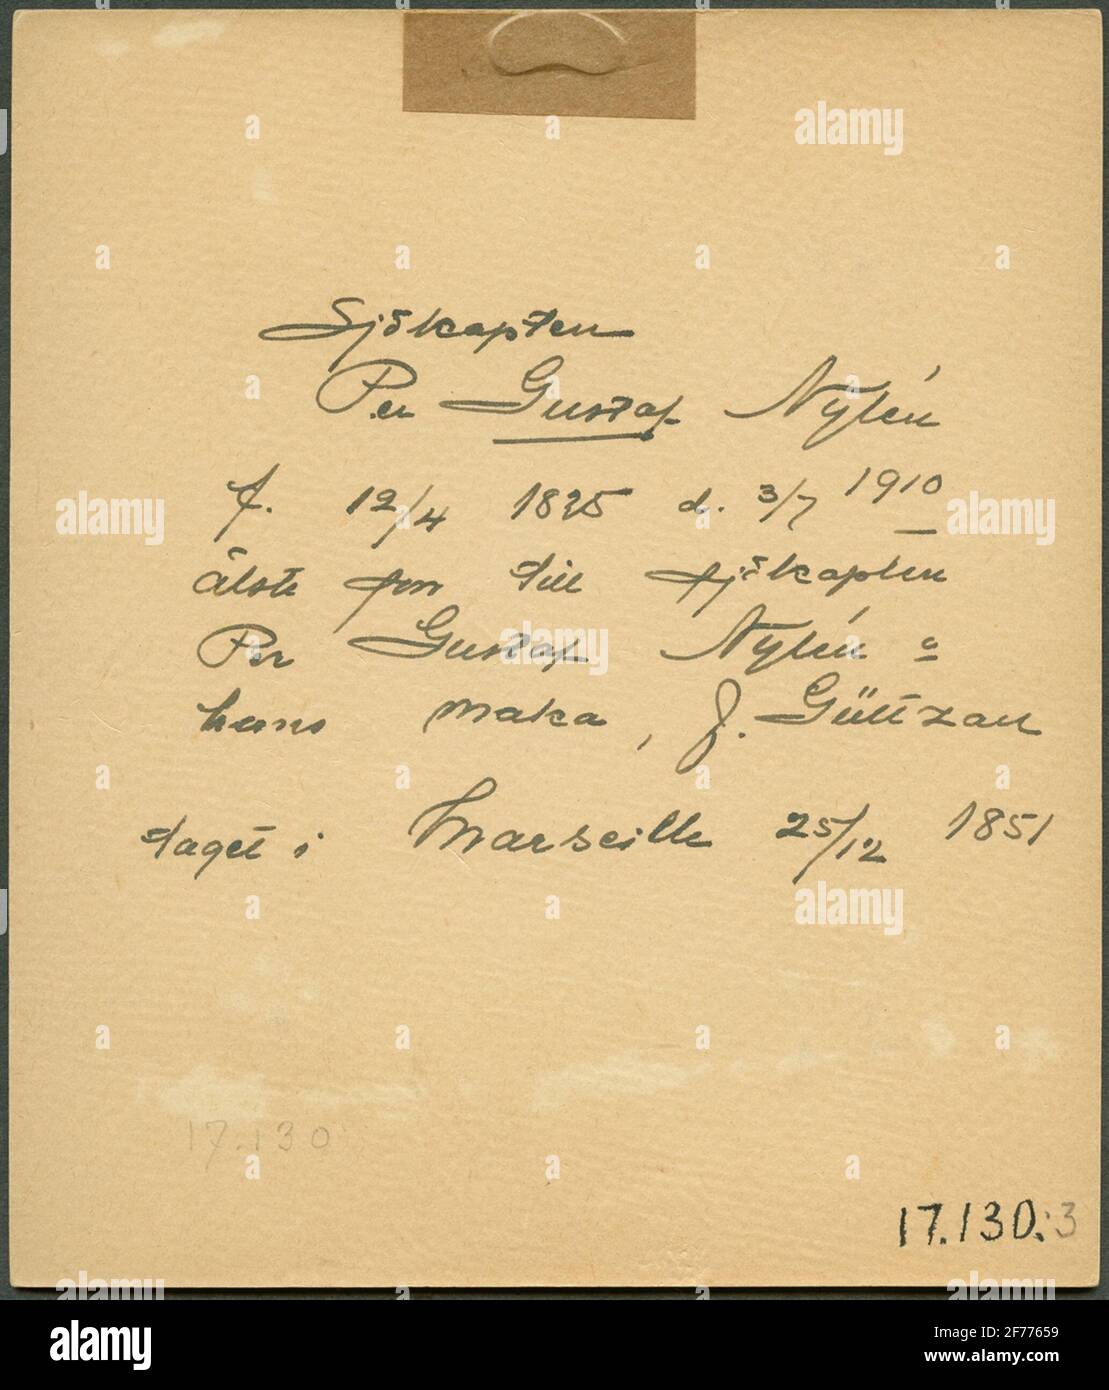 Sjökapten
Per Gustaf Nylén
f. 12/4 1825 d. 3/7 1910
älste son till sjökapten
Per Gustaf Nylén o
hans maka, J. Güttzau
taget i Marseille 25/12 1851
17.130
17.130:3
alamy
Image ID: 2F77659
www.alamy.com